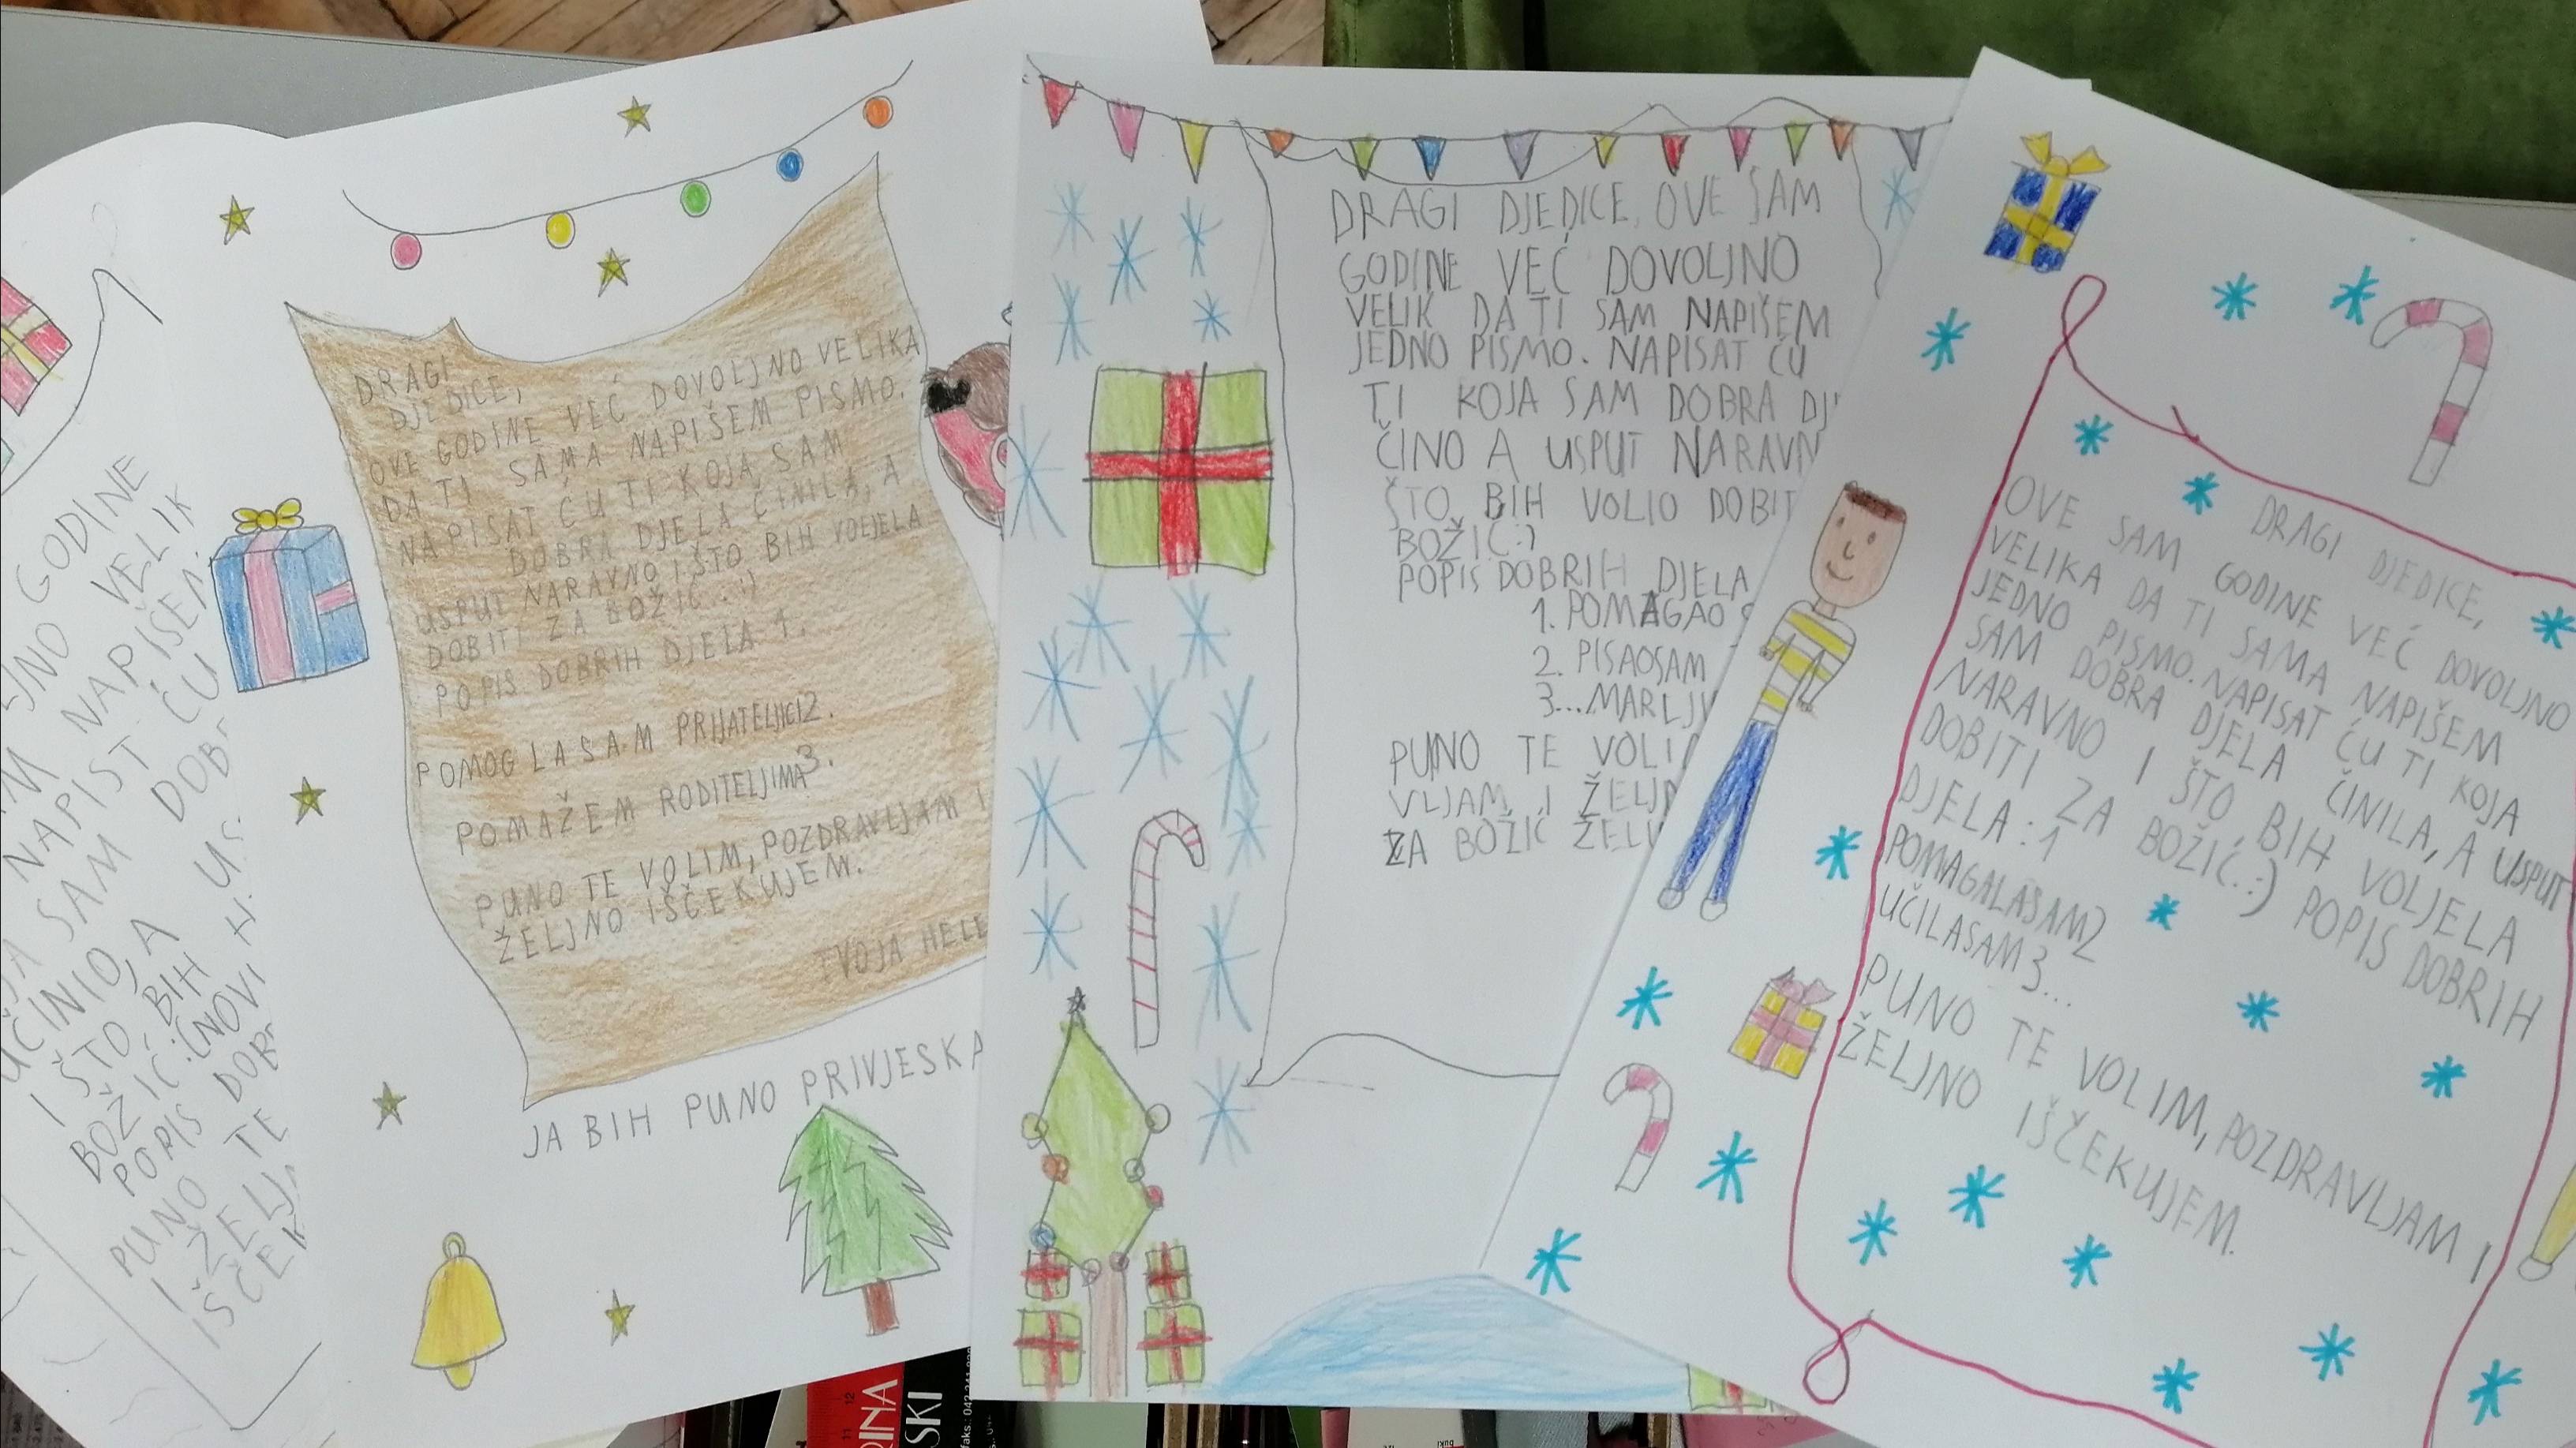 GODINE
VELIK
NAPIŠEM
NAPIST ĆU
SAM DOBR
UČINIO, A US
I ŠTO BIH
BOŽIĆ
POPIS DOBR
PUNO TE
I ŽELJ
IŠČEK
DRAGI
DJEDICE,
OVE GODINE VEĆ DOVOLJNO VELIKA
DA TI SAMA NAPIŠEM PISMO.
NAPISAT ĆU TI KOJA SAM
DOBRA DJELA ČINILA, A
USPUT NARAVNO I ŠTO BIH VOLJELA
DOBITI ZA BOŽIĆ..:)
POPIS DOBRIH DJELA 1.
POMOGLA SAM PRIJATELJICI2.
POMAŽEM RODITELJIMA3.
PUNO TE VOLIM, POZDRAVLJAM I
ŽELJNO IŠČEKUJEM.
TVOJA HELE
JA BIH PUNO PRIVJESKA
DRAGI DJEDICE, OVE SAM
GODINE VEĆ DOVOLJNO
VELIK DA TI SAM NAPIŠEM
JEDNO PISMO. NAPISAT ĆU
TI KOJA SAM DOBRA DJ
ČINO A USPUT NARAVN
ŠTO BIH VOLIO DOBIT
BOŽIĆ:)
POPIS DOBRIH DJELA
1. POMAGAO S
2. PISAOSAM
3...MARLJI
PUNO TE VOLI
VLJAM I ŽELJN
ZA BOŽIĆ ŽELI
DRAGI DJEDICE,
OVE SAM GODINE VEĆ DOVOLJNO
VELIKA DA TI SAMA NAPIŠEM
JEDNO PISMO. NAPISAT ĆU TI KOJA
SAM DOBRA DJELA ČINILA, A USPUT
NARAVNO I ŠTO BIH VOLJELA
DOBITI ZA BOŽIĆ.:) POPIS DOBRIH
DJELA:1
POMAGALASAM2
UČILASAM3...
PUNO TE VOLIM, POZDRAVLJAM I
ŽELJNO IŠČEKUJEM.
RINA
SKI